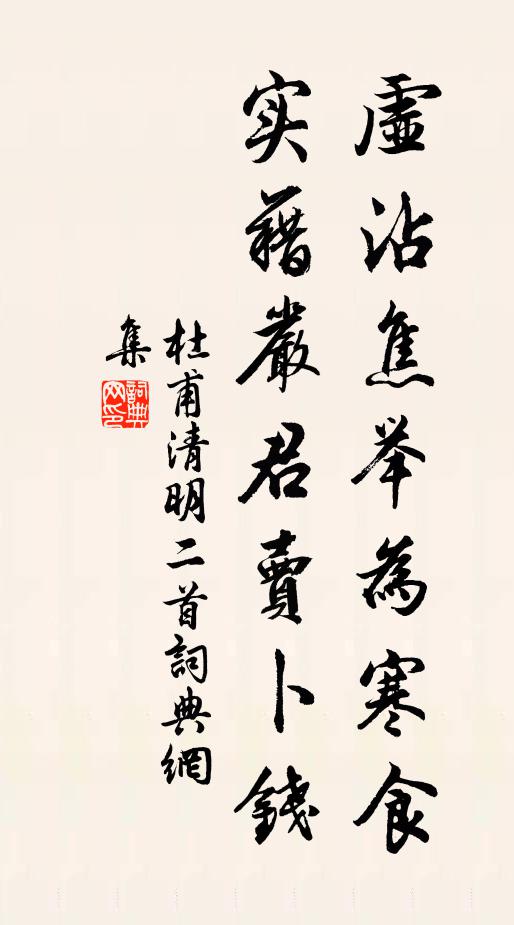 虛沾焦举為寒食
实藉嚴君賣卜錢
杜甫清明二首詞典網
集
詞典
网印